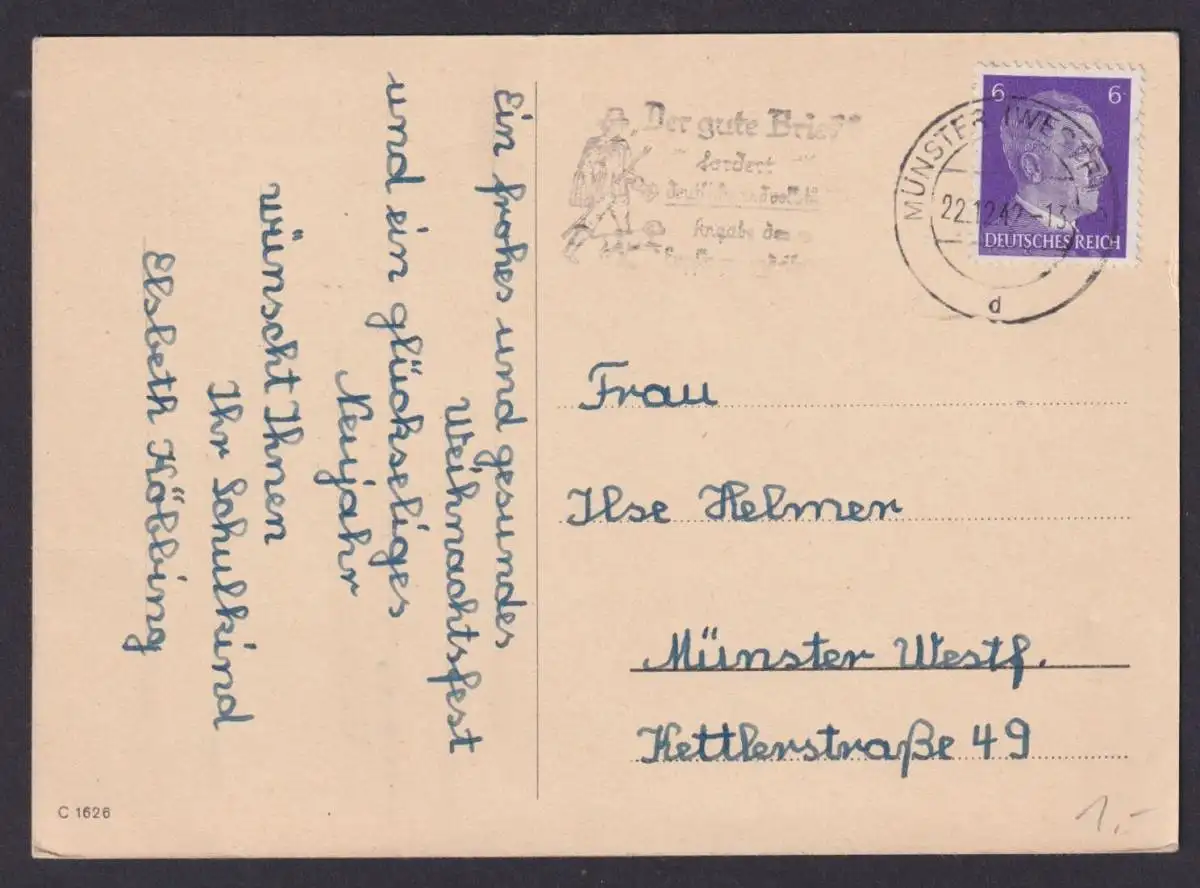 Ein frohes und gesundes
Weihnachtsfest
und ein glückseliges
Neujahr
wünscht Ihnen
Ihr Schulkind
Elsbeth Kölling
C 1626
„Der gute Brief“
fordert
Angabe des
MÜNSTER (WESTF)
22.12.42-13
d
6 6
DEUTSCHES REICH
Frau
Ilse Helmer
Münster Westf.
Kettlerstraße 49
1,-